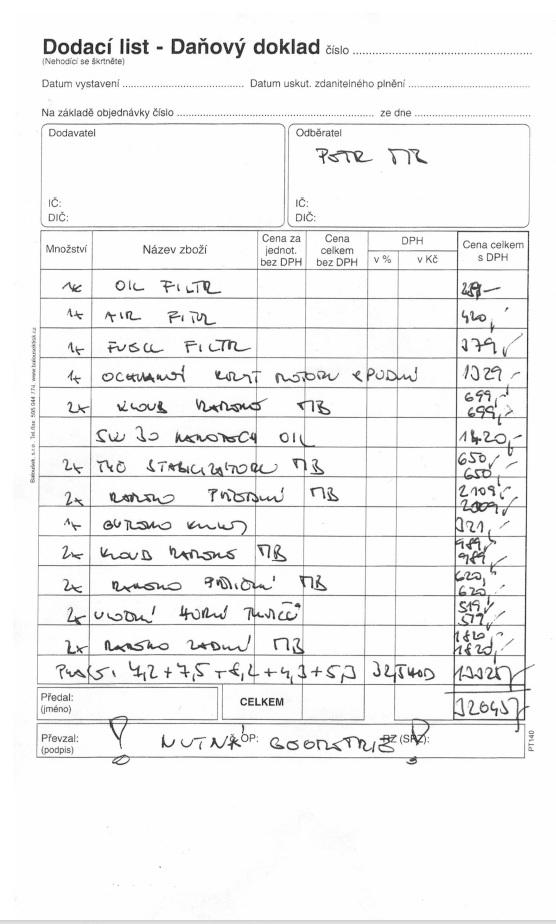 Dodací list - Daňový doklad číslo
(Nehodící se škrtněte)
Datum vystavení Datum uskut. zdanitelného plnění
Na základě objednávky číslo ze dne
Dodavatel
IČ:
DIČ:
Odběratel
PETR MB
IČ:
DIČ:
Množství Název zboží Cena za jednot. bez DPH Cena celkem bez DPH DPH v % v Kč Cena celkem s DPH
1x OIL FILTR
1x AIR FILTR 420,-
1x FUELL FILTR 379,-
1x OCHRANNÝ KRYT MOTORU SPODNÍ 1329,-
2x KLOUB RAMENO MB 699,- 699,-
5W 30 MOTOROVÝ OIL 1420,-
2x TYČ STABILIZÁTORU MB 650,- 650,-
2x RAMENO PŘEDNÍ MB 2109,- 2009,-
1x 321,-
2x KLOUB RAMENO MB 989,- 989,-
2x RAMENO MB 620,- 620,-
2x VODNÍ HORNÍ 519,-
2x RAMENO ZADNÍ MB 1820,- 1820,-
7,2 + 7,5 + 8,2 + 4,3 + 5,3 32,5 HOD
Předal:
(jméno)
CELKEM 32045,-
Převzal:
(podpis)
! NUTNÁ OP: GEOMETRIE BZ (SPZ): !
Baloušek, s.r.o. Tel./fax: www.balousektisk.cz
PT140